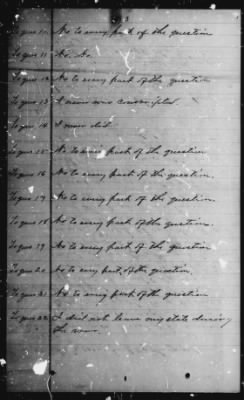 3
To ques 10. No to every part of the question
To ques 11. No. No.
To ques 12. No to every part of the question
To ques 13. I never was
To ques 14. I never did.
To ques 15. No to every part of the question
To ques 16. No to every part of the question.
To ques 17. No to every part of the question.
To ques 18. No to every part of the question.
To ques 19. No to every part of the question
To ques 20. No to every part of the question.
To ques 21. No to every part of the question
To ques 22. I did not leave my state during
the war.